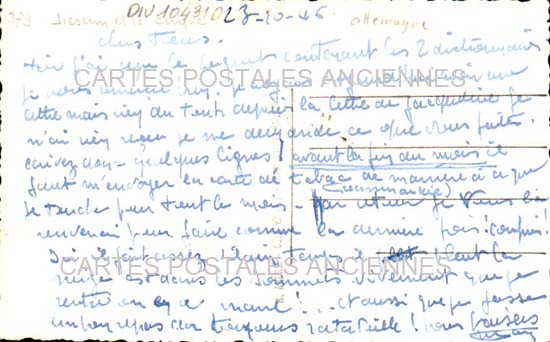 DIV 104310 23-10-46 allemagne
chers Tous.
Hier j'ai reçu le paquet contenant les 2 dictionnaires
je vous remercie
CARTES POSTALES ANCIENNES
cette mais rien du tout depuis la lettre de Jacqueline je
n'ai rien reçu je me demande ce que vous faites.
écrivez donc quelques lignes! avant la fin du mois il
faut m'envoyer la carte de tabac de manière à ce que
(recommandée)
je touche pour tout le mois - par retour je vous la
renverrai pour faire comme la dernière fois! compris!
Ici il fait assez
CARTES POSTALES ANCIENNES
neige est dans les sommets vivement que je
rentre on en a marre! .. et aussi que je fasse
un peu repos car toujours rata tuille! bons baisers